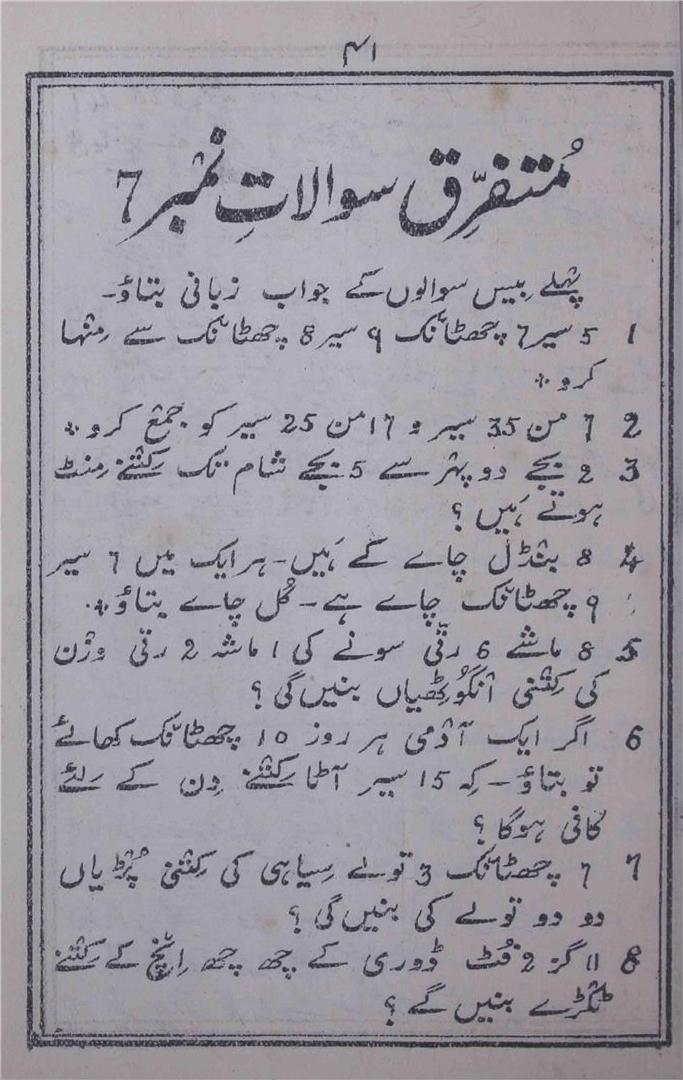 ۴۱
مُتفرِّق سوالاتِ نمبر 7
پہلے بیس سوالوں کے جواب زبانی بتاؤ۔
1 5 سیر 7 چھٹانک 9 سیر 8 چھٹانک سے مِنہا
کرو ؞
2 7 من 35 سیر و 17 من 25 سیر کو جمع کرو ؞
3 2 بجے دوپہر سے 5 بجے شام تک کِتنے مِنٹ
ہوتے ہَیں ؟
4 8 بنڈل چاے کے ہَیں۔ ہر ایک میں 7 سیر
9 چھٹانک چاے ہے۔ کُل چاے بتاؤ ؞
5 8 ماشے 6 رتّی سونے کی 1 ماشہ 2 رتی وزن
کی کِتنی انگُوٹھِیاں بنیں گی ؟
6 اگر ایک آدمی ہر روز 10 چھٹانک کھائے
تو بتاؤ۔ کِہ 15 سیر آٹا کِتنے دِن کے لِئے
کافی ہوگا ؟
7 7 چھٹانک 3 تولے سِیاہی کی کِتنی پُڑیاں
دو دو تولے کی بنیں گی ؟
8 11 گز 2 فُٹ ڈوری کے چھ چھ اِنچ کے کِتنے
ٹکڑے بنیں گے ؟